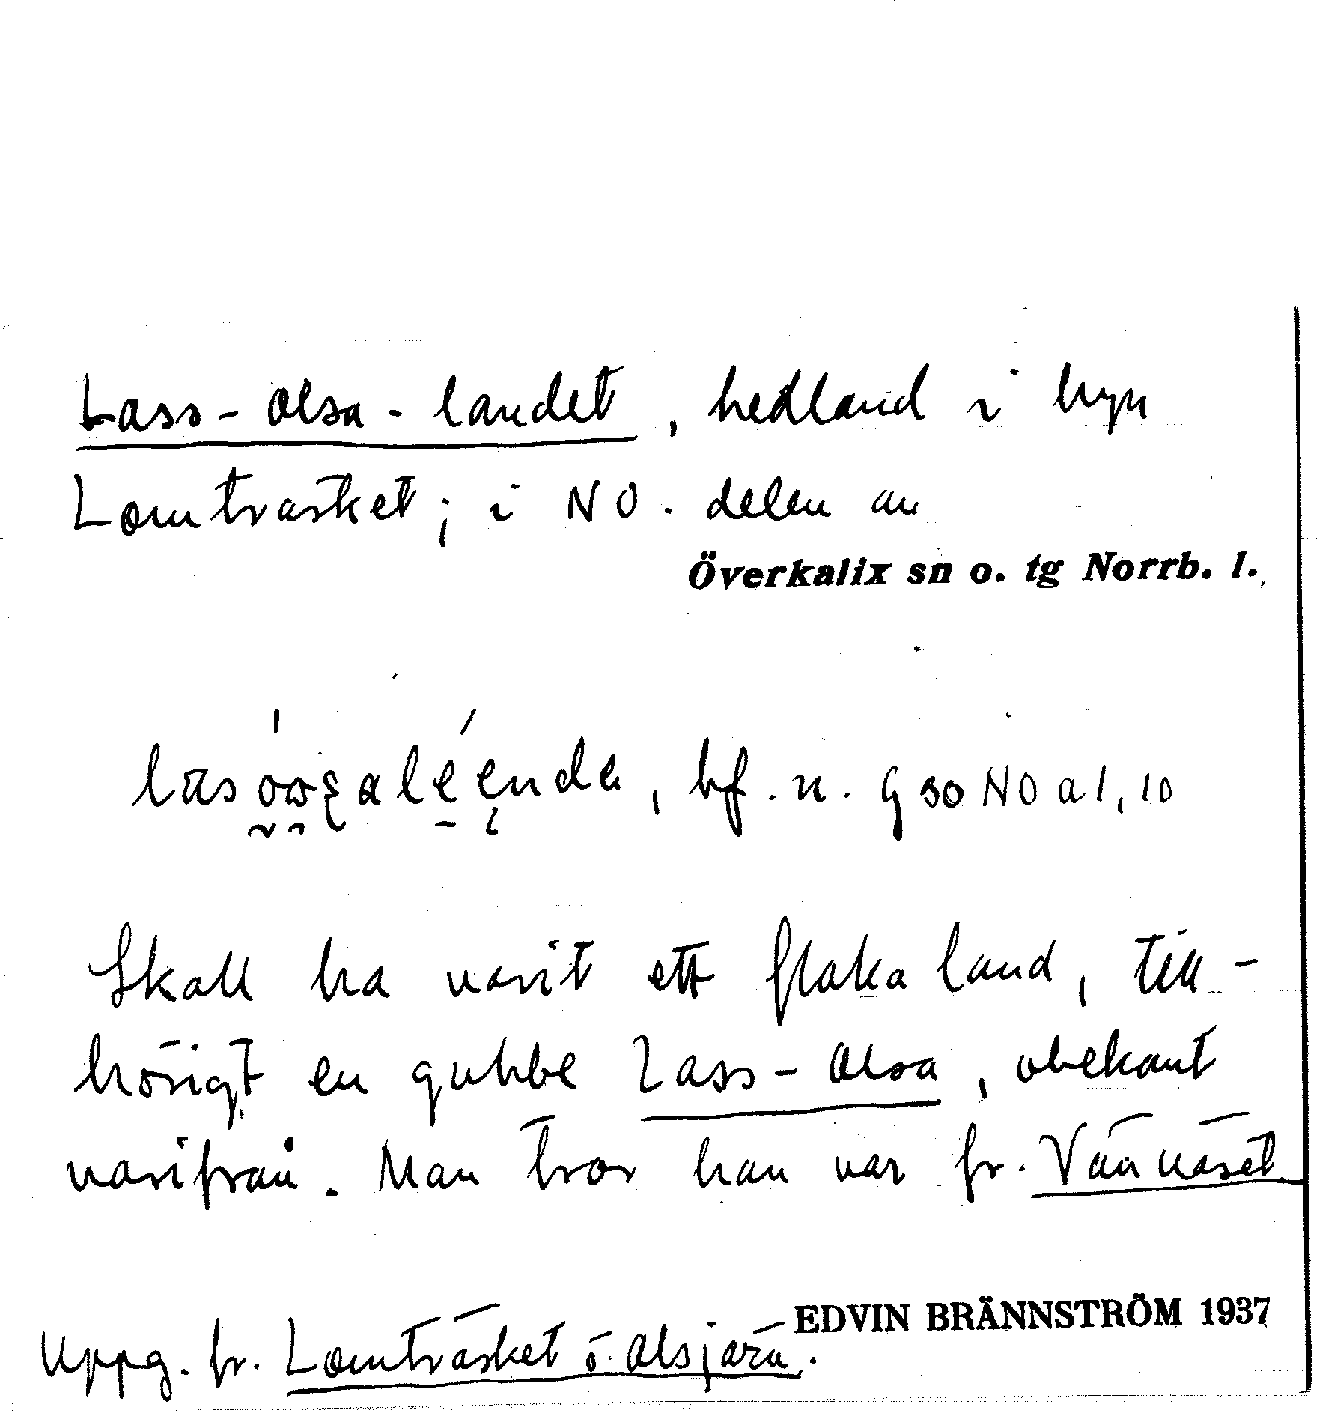 Lass-Olsa-landet, hedland i byn
Lomträsket; i NO. delen av
Överkalix sn o. tg Norrb. l.
bf. n. G 50 NO a 1, 10
Skall ha varit ett flakaland, till-
hörigt en gubbe Lass-Olsa, obekant
varifrån. Man tror han var fr. Vännäset
EDVIN BRÄNNSTRÖM 1937
Uppg. fr. Lomträsket o. Alsjärv.